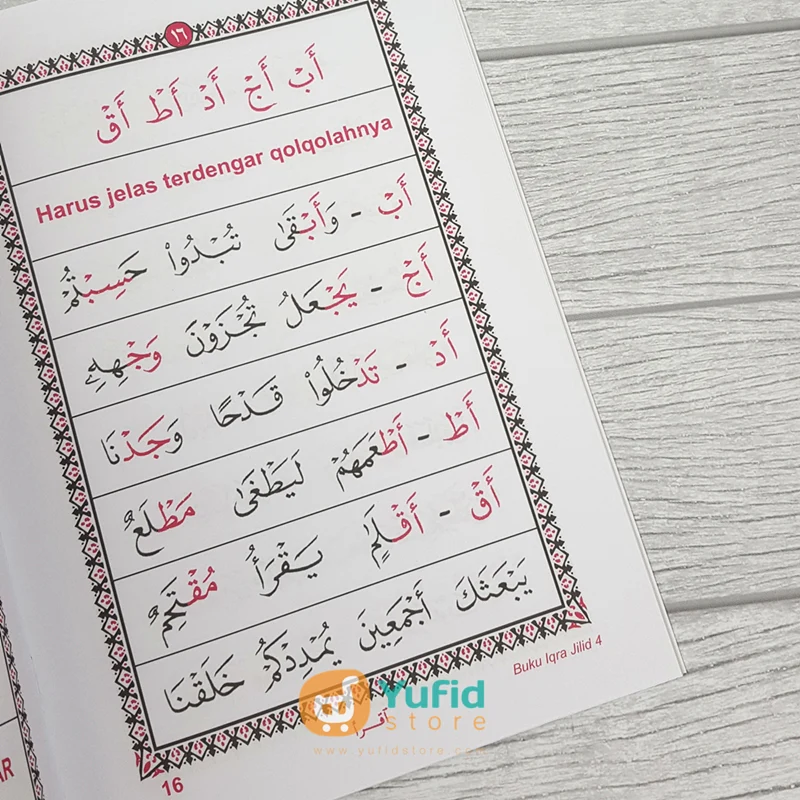 ١٦
أَبْ أَجْ أَدْ أَطْ أَقْ
Harus jelas terdengar qolqolahnya
أَبْ - وَأَبْقَىٰ تُبْدُواْ حَسِبْتُمْ
أَجْ - يَجْعَلُ تُجْزَوْنَ وَجْهِهِ
أَدْ - تَدْخُلُواْ قَدْحًا وَجَدْنَا
أَطْ - أَطْعَمَهُمْ لَيَطْغَىٰ مَطْلَعٌ
أَقْ - أَقْلَمٌ يَقْرَأُ مُقْتَحِمٌ
يَبْعَثَكَ أَجْمَعِينَ يُمْدِدْكُمْ خَلَقْنَا
Buku Iqra Jilid 4
Yufid
store
اقرأ
www.yufidstore.com
16
AR